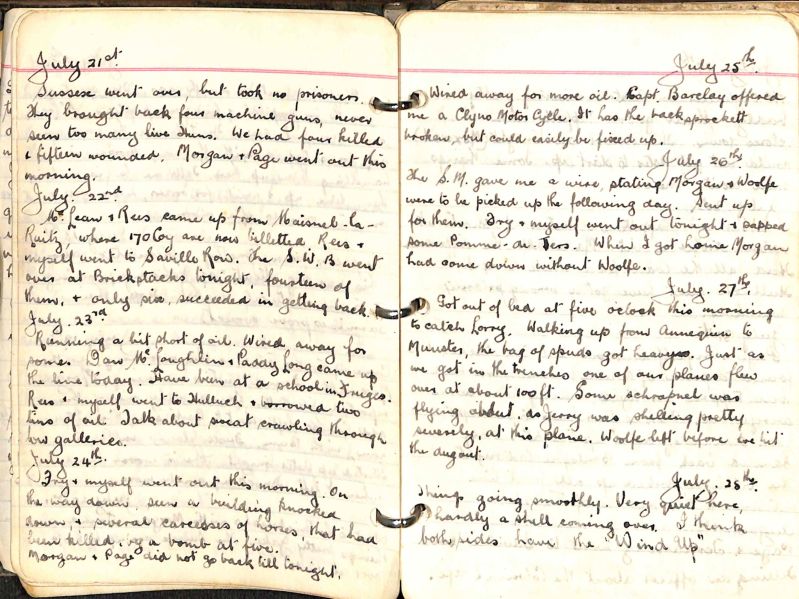 July 21st.
Sussex went over, but took no prisoners.
They brought back four machine guns, never
seen too many live Huns. We had four killed
+ fifteen wounded. Morgan + Page went out this
morning.
July. 22nd
Mc Lean + Rees came up from Maisnel-la-
Ruitz, where 170 Coy are now billetted Rees +
myself went to Saville Row. The S.W.B went
over at Brickstacks tonight, fourteen of
them, + only six, succeeded in getting back.
July. 23rd
Running a bit short of oil. Wired away for
some. Dan Mc Loughlin + Paddy Long came up
the line today. Have been at a school in Fruges.
Rees + myself went to Hulluch + borrowed two
tins of oil. Talk about sweat crawling through
low galleries.
July 24th.
Fry + myself went out this morning. On
the way down, seen a building knocked
down, + several carcesses of horses, that had
been killed, by a bomb at five.
Morgan + Page did not go back till tonight.
July 25th.
Wired away for more oil. Capt. Barclay offered
me a Clyno Motor Cycle. It has the back sprockett
broken, but could easily be fixed up.
July 26th.
The S.M. gave me a wire, stating Morgan + Woolfe
were to be picked up the following day. Sent up
for them. Fry + myself went out tonight + papped
some Pomme-de-Ters. When I got home Morgan
had come down without Woolfe.
July. 27th.
Got out of bed at five oclock this morning
to catch Lorry. Walking up from Annequin to
Munster, the bag of spuds got heavy. Just as
we got in the trenches one of our planes flew
over at about 100 ft. Some schrapnel was
flying about, as Jerry was shelling pretty
severely, at this plane. Woolfe left before we hit
the dugout.
July. 28th.
Things going smoothly. Very quiet here,
hardly a shell coming over. I think
both sides have the "Wind Up"